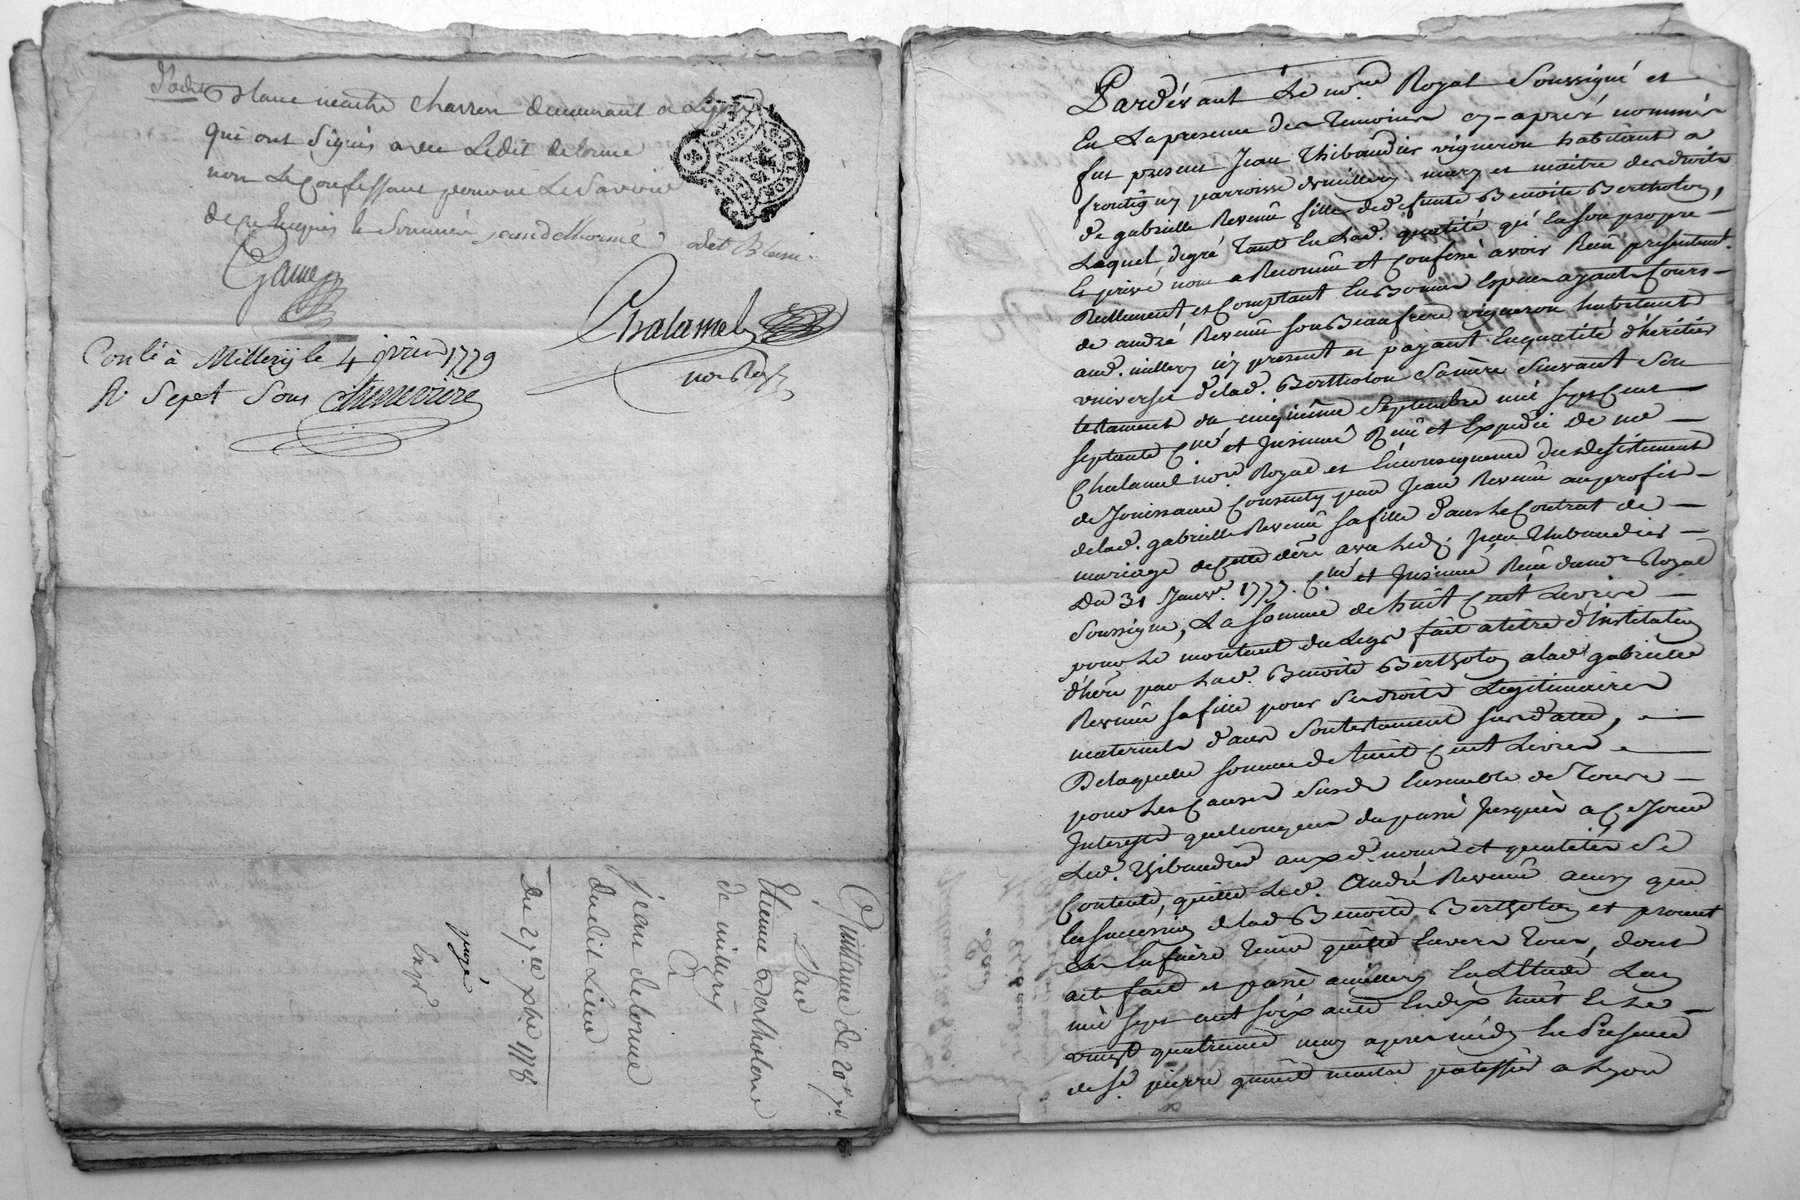 Blanc maitre charron demeurant a Lyon
qui ont signés avec Ledit delorme
non Le Confessant
de ce Enquis le Sommé jean delhorme odet Blanc
Game
Chalamel
no.re Royl
Conlé à Millery le 4 1779
R. Sept Sous Chenevière
Quittance de 20# 7s
Par
Etienne Bertholon
de millery
A
jean delorme
dudit Lieu
Du 27.e xbre 1778
Pardevant Le no.re Royal Soussigné et
En La presence des Temoins cy-aprés nommés
fut present Jean Thibaudier vigneron habitant a
frontigny parroisse de millery mary et maitre des droits
de gabrielle Revenû fille de defunte Benoite Bertholon,
Laquel degré tant En Lad. qualité qu'en Son propre
Et privé nom a Reconnu et Confessé avoir Recû presentem.t
Reellement et Comptant En Bonnes Espèces ayant Cours
de andré Revenû Son Beaufrere vigneron habitant
aud. millery icy present et payant En qualité d'héritier
universel de lad. Bertholon Sa mère Suivant Son
testament du cinquième Septembre mil Sept Cent
Septante C.lé et Insinué Reçu et Expedié de me
Chalamel no.re Royal et En consequence du desistement
de Jouissance Consenty par Jean Revenû au profit
de lad. gabrielle Revenû Sa fille dans Le Contrat de
mariage de Cette dère avec Led. Jean Thibaudier
Du 31 Janv.r 1777. C.lé et Insinué Reçu dud. no.re Royal
Soussigné, La Somme de huit Cent Livres
pour Le montant du Legs fait a titre d'institution
d'hére par Lad. Benoite Bertholon a lad. gabrielle
Revenû Sa fille pour Ses droits Legitimaires
maternels dans Son testament Susdatté,
De laquelle Somme de huit Cent Livres
pour Les Causes Susd. Ensemble de Tous
Interest quelconques du passé Jusques a Ce Jour
Led. Thibaudier aux d. noms et qualités Se
Contente, quitte Led. André Revenû ainsy que
La Succession de lad. Benoite Bertholon et promet
de Les faire Tenir quitte Envers Tous, dont
acte fait et passé a millery En L'Etude L'an
mil Sept cent Soixante Et dix huit Et Le
vingt quatrieme may apres midy En Presence
de S.r pierre maitre patissier a Lyon